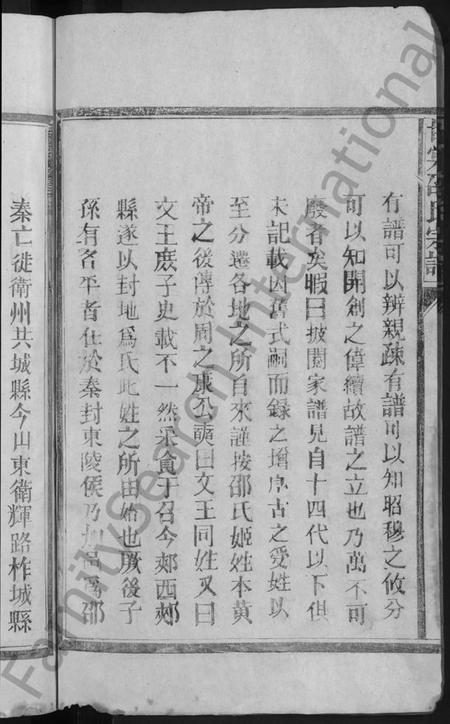 甘棠邵氏宗譜
有譜可以辨親疎有譜可以知昭穆之攸分
可以知開創之偉績故譜之立也乃萬不可
廢者矣暇日披閱家譜見自十四代以下俱
未記載因舊式嗣而錄之增唐古之受姓以
至分遷各地之所自來謹按邵氏姬姓本黃
帝之後傳於周之康公奭曰文王同姓又曰
文王庶子史載不一然采食于召今郟西郟
縣遂以封地爲氏此姓之所由始也厥後子
孫有名平者仕於秦封東陵侯乃加邑爲邵
秦亡徙衛州共城縣今山東衛輝路柞城縣
FamilySearch International